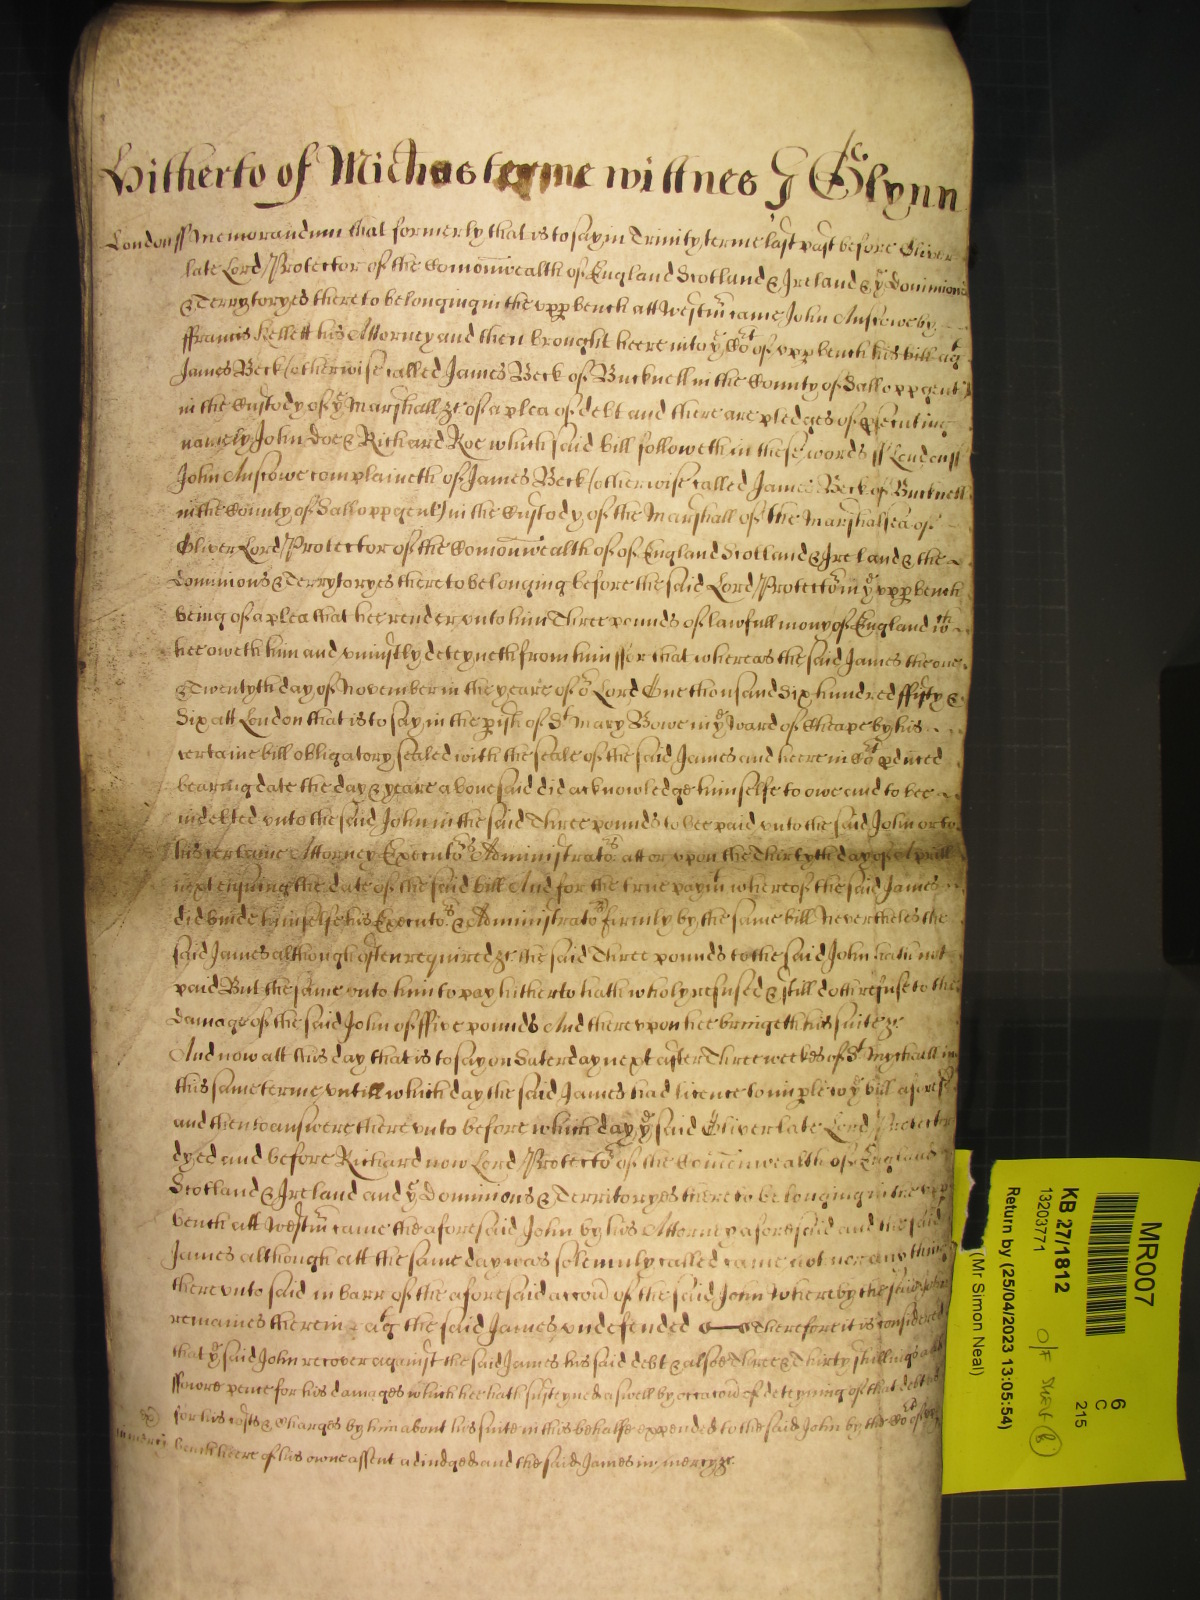 Hitherto of Michas terme wittnes J Glynn
London ss Memorandum that formerly that is to say in Trinity terme last past before Oliver
late Lord Protector of the Comonwealth of England Scotland & Ireland & ye Dominions
& Terrytoryes thereto belonging in the upp bench att Westm came John Anscowe by
ffrancis Kellett his Attorney and then brought heere into ye Cot of upp bench his bill agt
James Beck (otherwise called James Beck of Bucknell in the County of Sallop gent)
in the Custody of ye Marshall &c of a plea of debt and there are pledges of psecuting
namely John Doe & Richard Roe which said bill followeth in these words ss London ss
John Anscowe complaineth of James Beck (otherwise called James Beck of Bucknell
in the County of Sallop gent) in the Custody of the Marshall of the Marshalsea of
Oliver Lord Protector of the Comonwealth of of England Scotland & Ireland & the
Dominions & Terrytoryes thereto belonging before the said Lord Protector in ye upp bench
being of a plea that hee render unto him Three pounds of lawfull mony of England wch
hee oweth him and uniustly deteyneth from him ffor that whereas the said James the one
& Twentyth day of November in the yeare of or Lord One thousand Six hundred ffifty &
Six att London that is to say in the pish of St Mary Bowe in ye Ward of Cheape by his
certaine bill obligatory sealed with the seale of the said James and heere in Cot pduced
bearing date the day & yeare abovesaid did acknowledge himselfe to owe and to bee
indebted unto the said John in the said Three pounds to bee paid unto the said John or to
his certaine Attorney Executors Administrators att or upon the Thirtyth day of Aprill
next ensuing the date of the said bill And for the true paymt whereof the said James
did binde himselfe his Executors & Administrators firmly by the same bill Nevertheles the
said James although often required &c the said Three pounds to the said John hath not
paid But the same unto him to pay hitherto hath wholy refused & still doth refuse to the
damage of the said John of ffive pounds And thereupon hee bringeth his suite &c
And now att this day that is to say on Saterday next after Three weekes of St Mychaell in
this same terme untill which day the said James had licence to imple to ye bill aforesd
and then to answere thereunto before which day ye said Oliver late Lord Protector
dyed and before Richard now Lord Protector of the Comonwealth of England
Scotland & Ireland and ye Dominions & Territoryes thereto belonging in the upp
bench att Westm came the aforesaid John by his Attorney aforesaid and the said
James although att the same day was solemnly called came not nor any thing
thereunto said in barr of the aforesaid accon of the said John Whereby the said John
remaines therein agt the said James undefended Therefore it is considered
that ye said John recover against the said James his said debt & alsoe Three & Thirty shillings and
ffowre pence for his damages which hee hath susteyned aswell by occacon of deteyning of that debt as
for his costs & Charges by him about his suite in this behalfe expended to the said John by the Cot of upp
in mercy bench heere of his owne assent adiudged and the said James in mercy &c
MR007
KB 27/1812
13203771
Return by (25/04/2023 13:05:54)
(Mr Simon Neal)
6
C
215